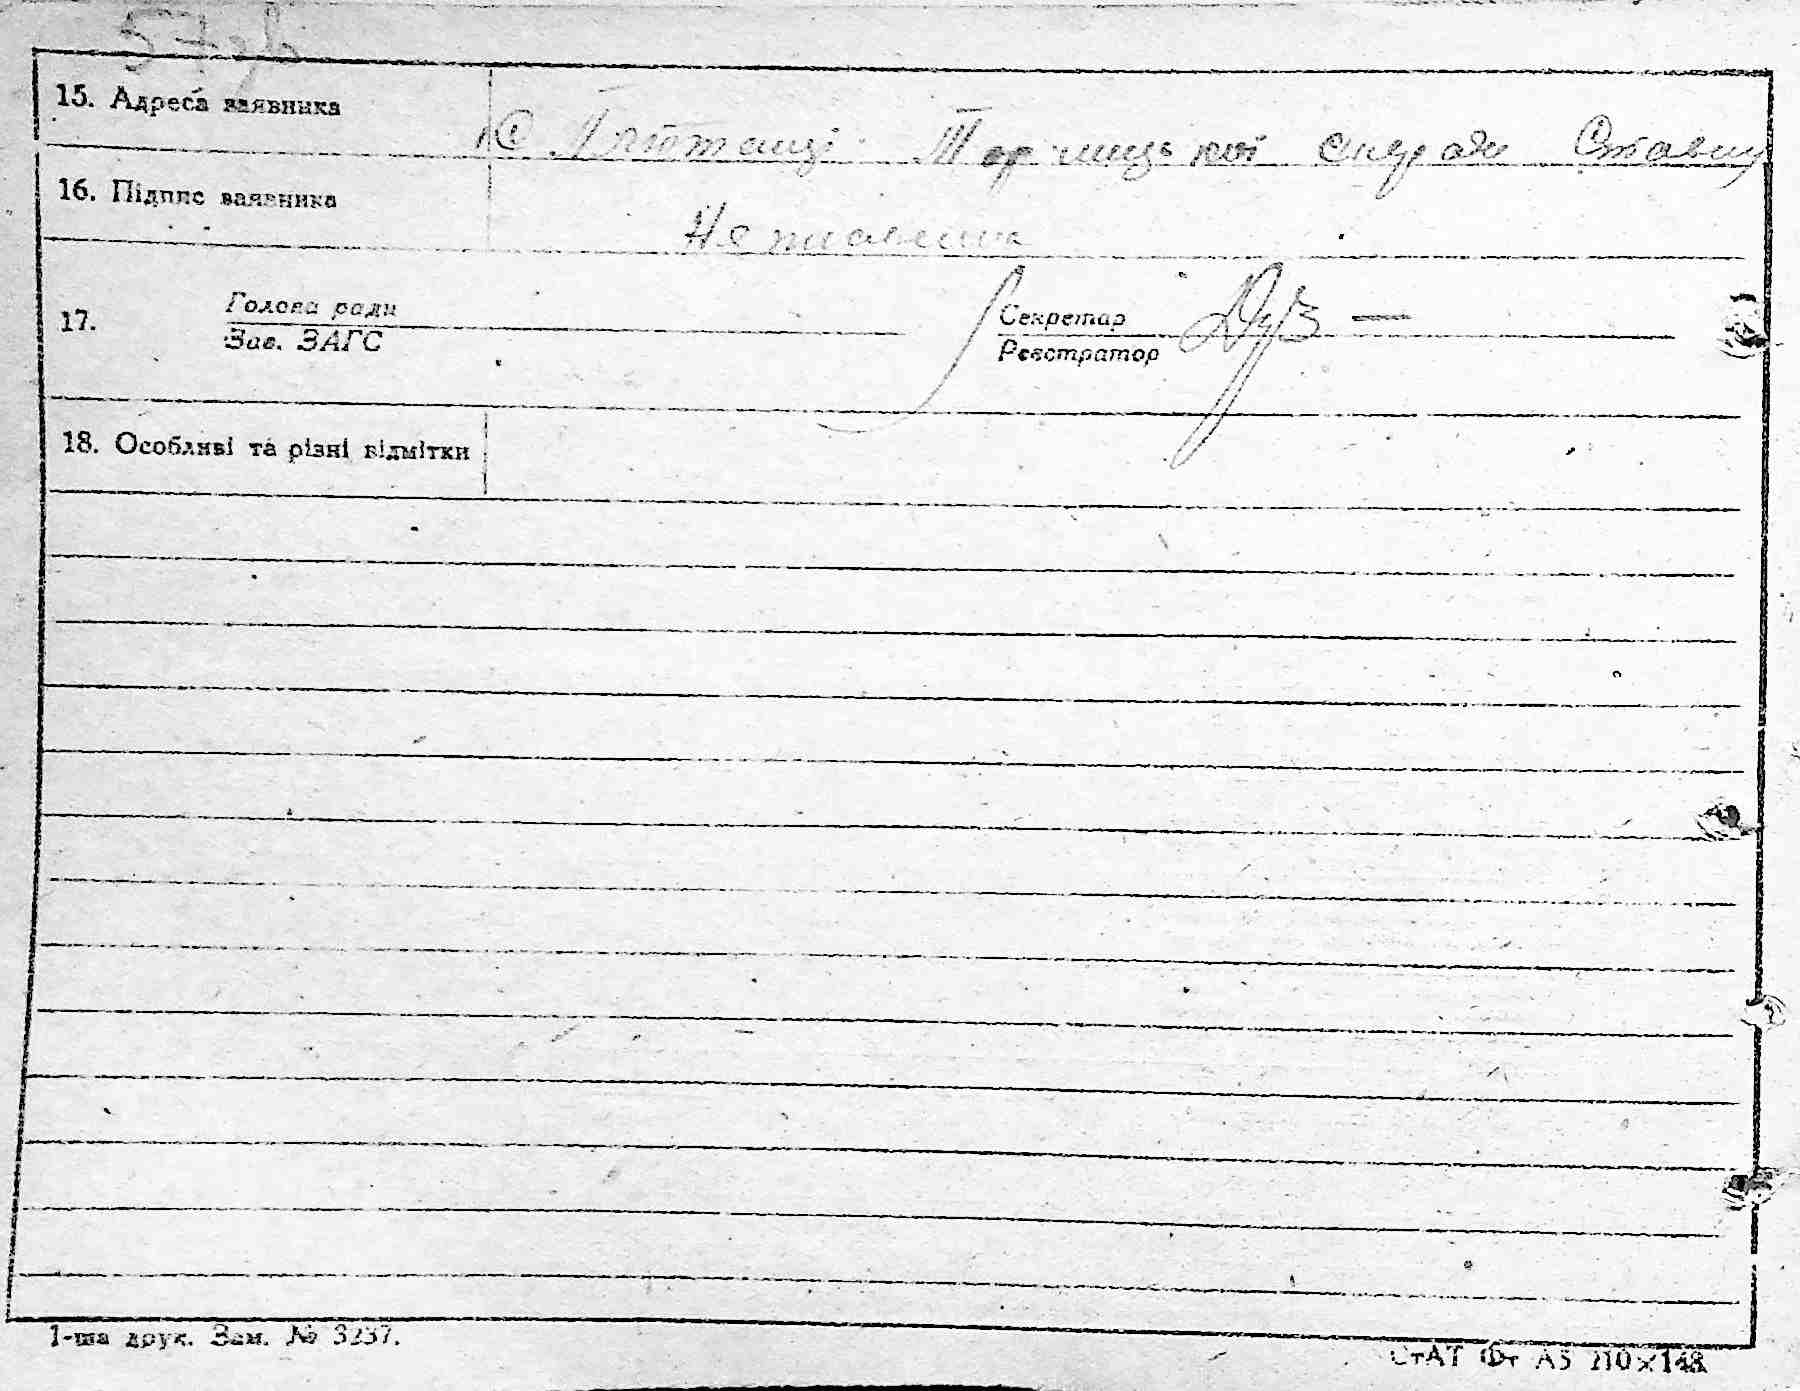 15. Адреса заявника
С Торчицької сільради Ставищ
16. Підпис заявника
Неписьмена
17. Голова ради Секретар
Зав. ЗАГС Реєстратор
18. Особливі та різні відмітки
1-ша друк. Зам. № 3237.
СтАТ Фт А5 210×148